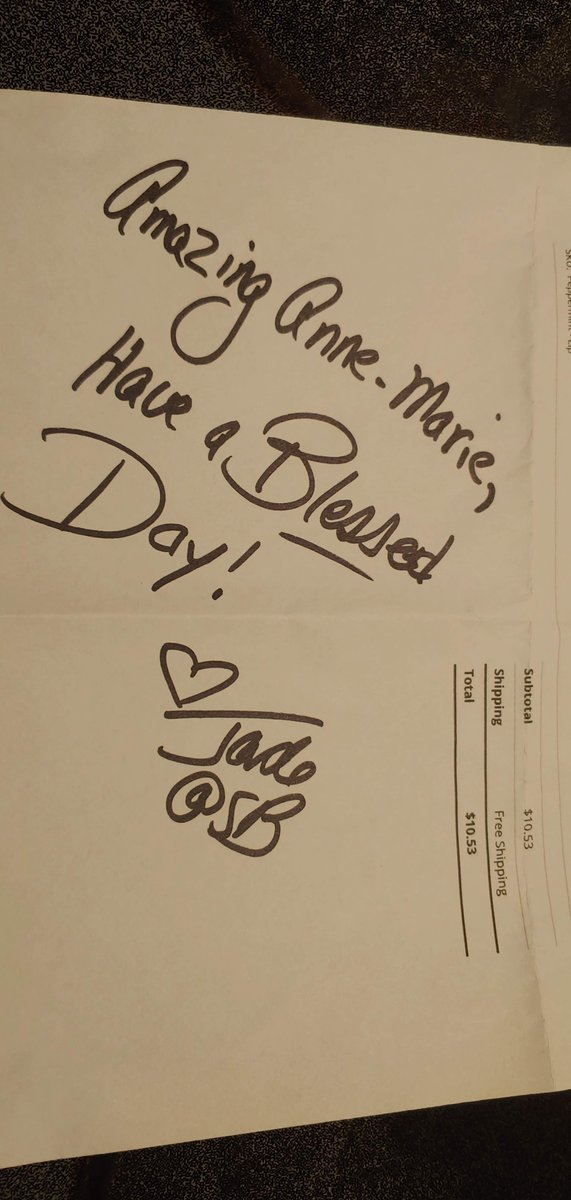 SKU: Peppermint - Lip
Subtotal $10.53
Shipping Free Shipping
Total $10.53
Amazing Anne-Marie,
Have a Blessed
Day!
Jade
@SB